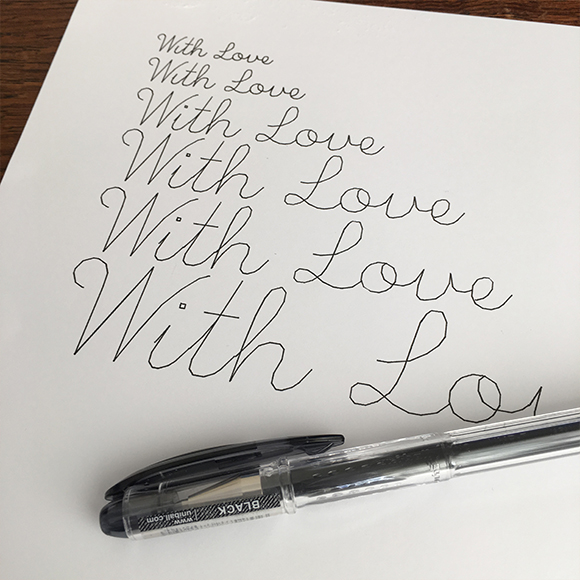 With Love
With Love
With Love
With Love
With Love
With Lo
BLACK
www
uniball.com